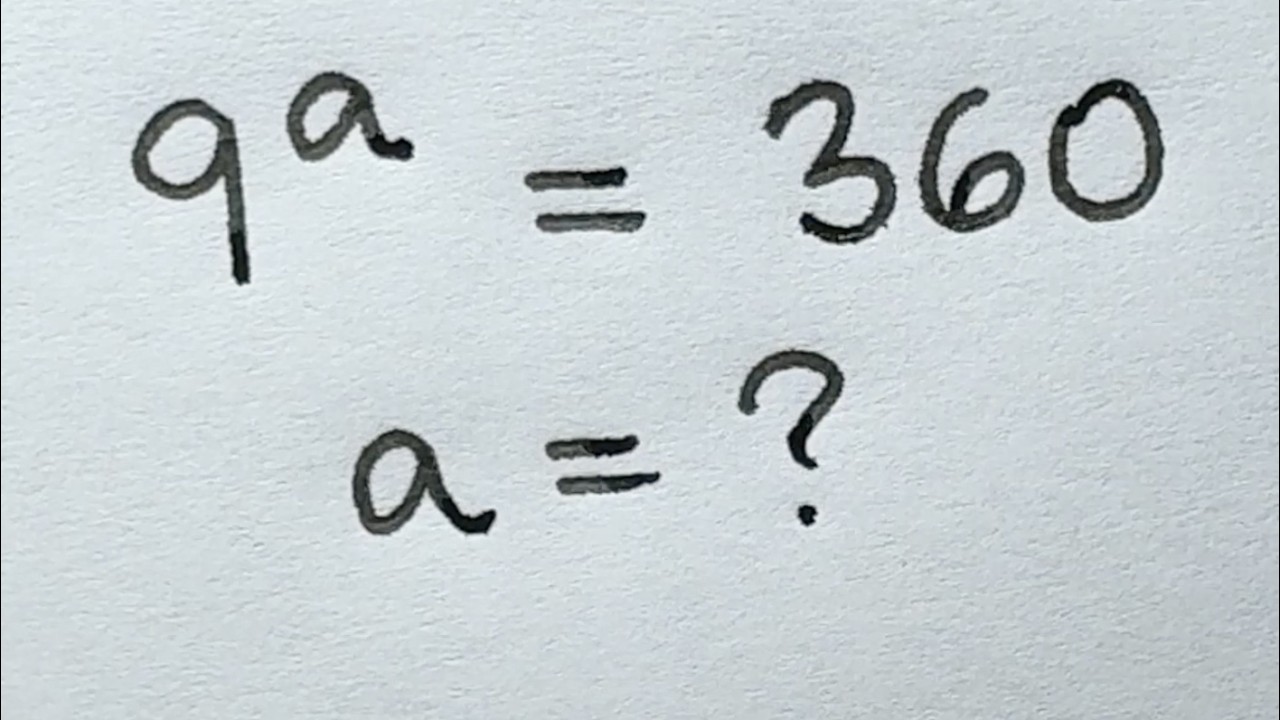 9ᵃ = 360
a = ?